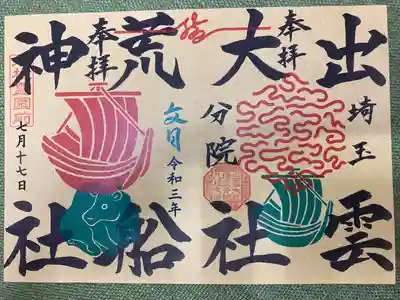 出雲
埼玉
奉拝
大社
分院
荒船
文月
令和三年
奉拝
神社
七月十七日